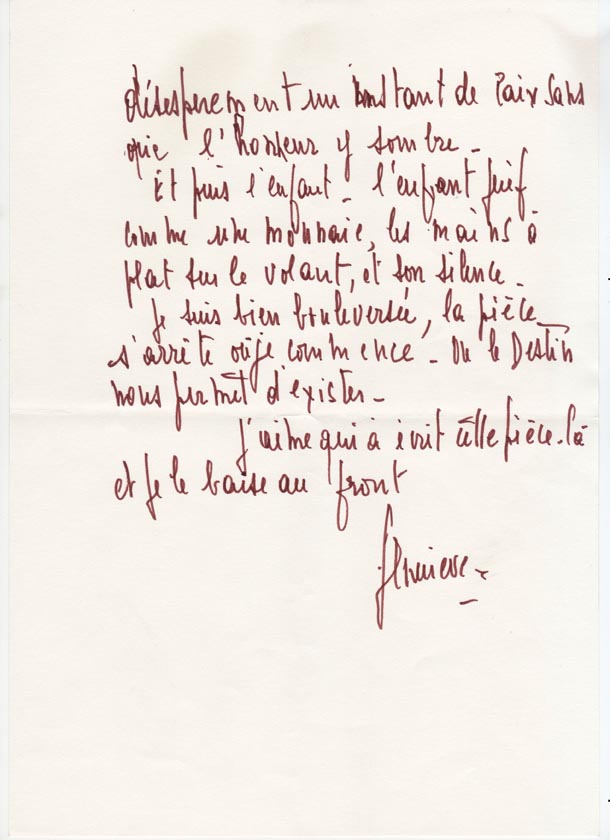 désesperement un instant de Paix sans
que l'honneur y sombre -
Et puis l'enfant - l'enfant juif
comme une monnaie, les mains à
plat sur le volant, et son silence -
Je suis bien bouleversée, la pièce
s'arrête où je commence - Où le Destin
nous permet d'exister -
J'aime qui a écrit cette pièce-là
et je le baise au front
Genevieve -